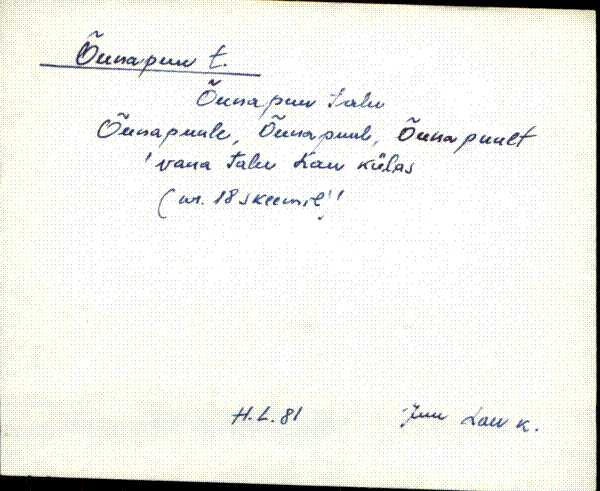 Õunapuu t.
Õunapuu talu
Õunapuule, Õunapuul, Õunapuult
'vana talu Kau külas
(nr. 18 skeemil)'
H.L. 81
Juu Kau k.